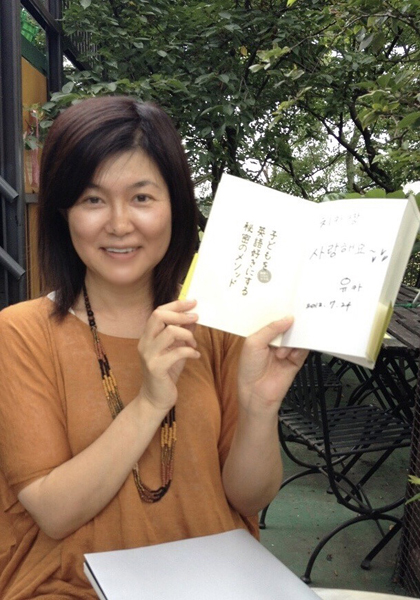 子どもを
英語好きにする
秘密のメソッド
사랑해요
유아
2012. 7. 24